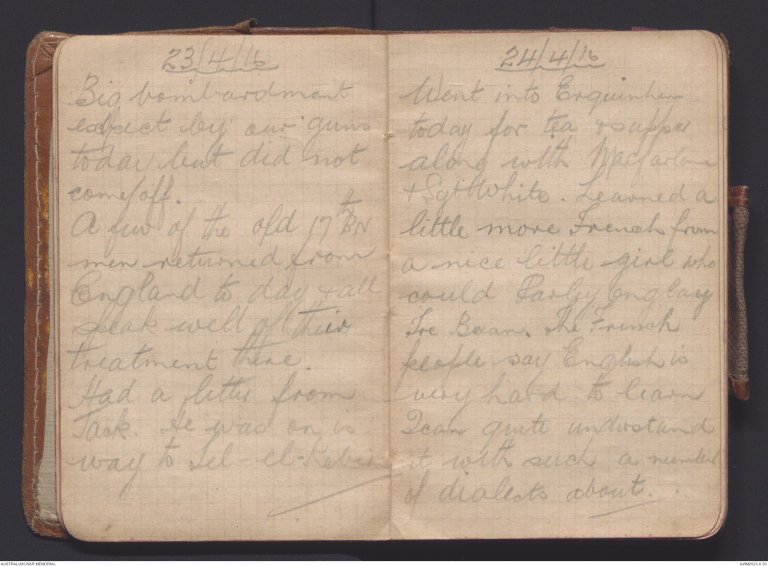 23/4/16
Big bombardment
expect by our guns
today but did not
come off.
A few of the old 17th BN
men returned from
England to day & all
speak well of their
treatment there.
Had a letter from
Jack. He was on is
way to Tel-el-Kebir
24/4/16
Went into Erquinhem
today for tea & supper
along with MacFarlane
& Sgt White. Learned a
little more French from
a nice little girl who
could Parley
Tre Bean. The French
people say English is
very hard to learn
I can quite understand
it with such a number
of dialects about.
AUSTRALIAN WAR MEMORIAL